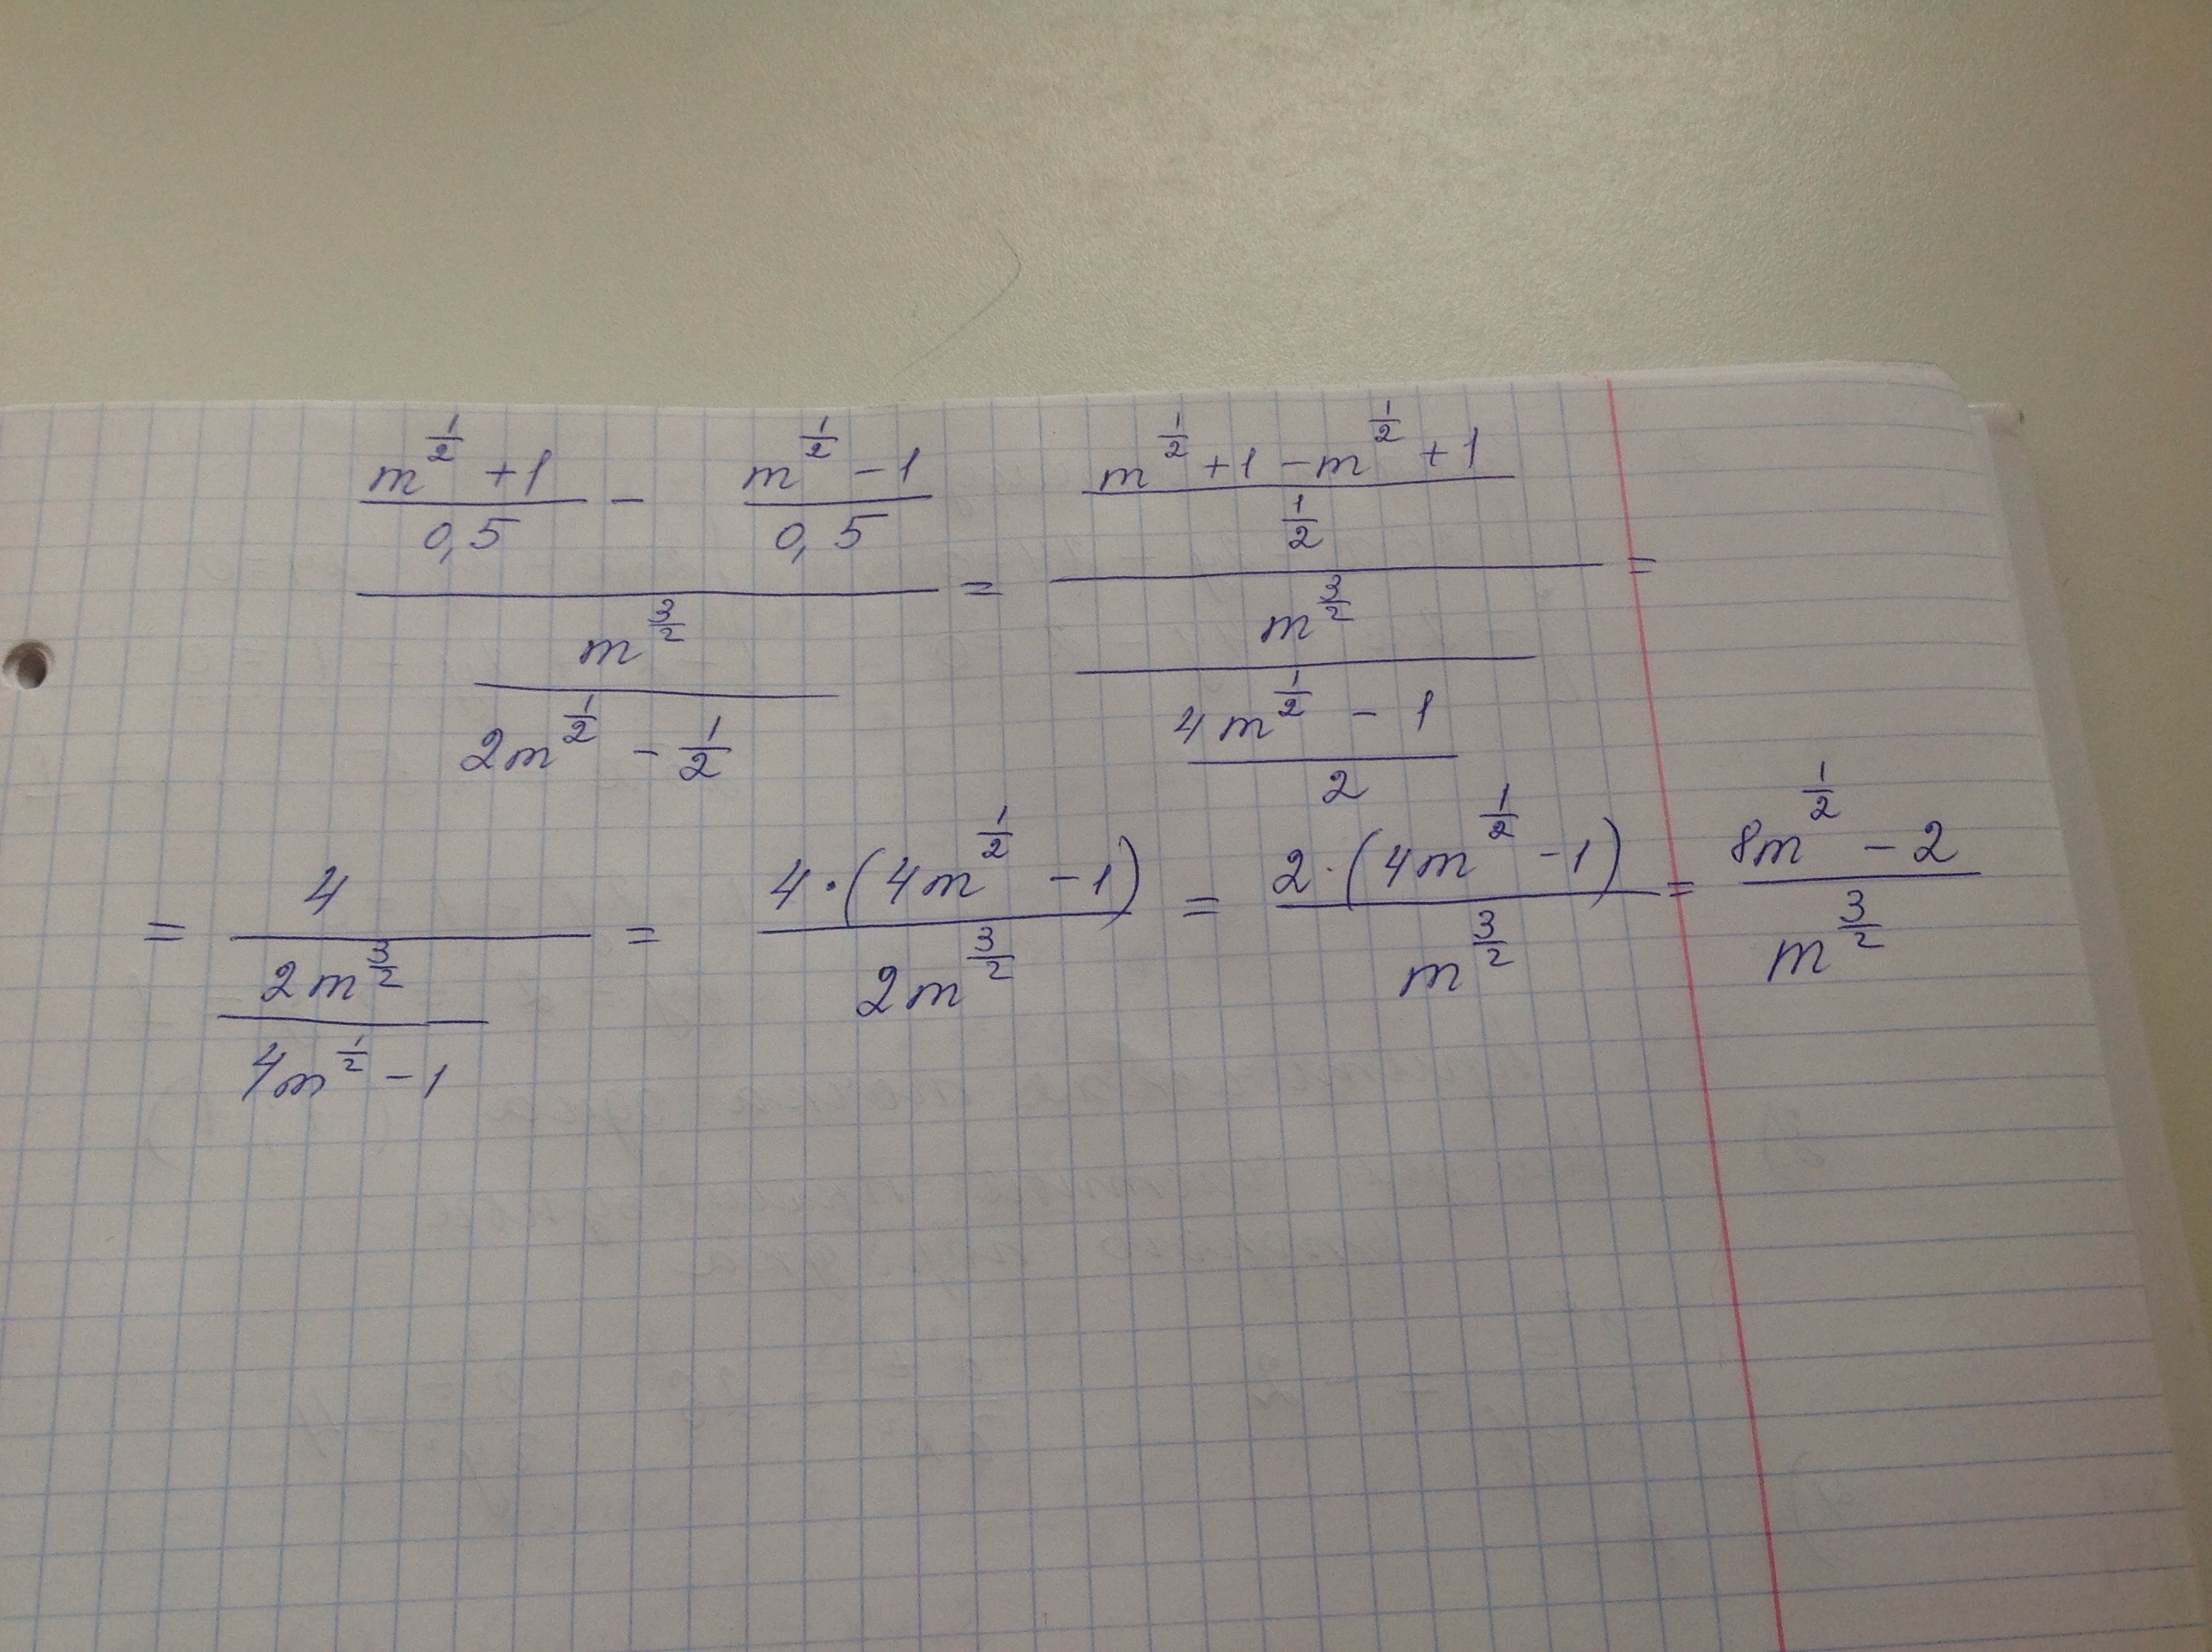 \frac{\frac{m^{\frac{1}{2}}+1}{0,5} - \frac{m^{\frac{1}{2}}-1}{0,5}}{\frac{m^{\frac{3}{2}}}{2m^{\frac{1}{2}} - \frac{1}{2}}} = \frac{\frac{m^{\frac{1}{2}}+1-m^{\frac{1}{2}}+1}{\frac{1}{2}}}{\frac{m^{\frac{3}{2}}}{\frac{4m^{\frac{1}{2}}-1}{2}}} =
= \frac{4}{\frac{2m^{\frac{3}{2}}}{4m^{\frac{1}{2}}-1}} = \frac{4 \cdot (4m^{\frac{1}{2}}-1)}{2m^{\frac{3}{2}}} = \frac{2 \cdot (4m^{\frac{1}{2}}-1)}{m^{\frac{3}{2}}} = \frac{8m^{\frac{1}{2}}-2}{m^{\frac{3}{2}}}